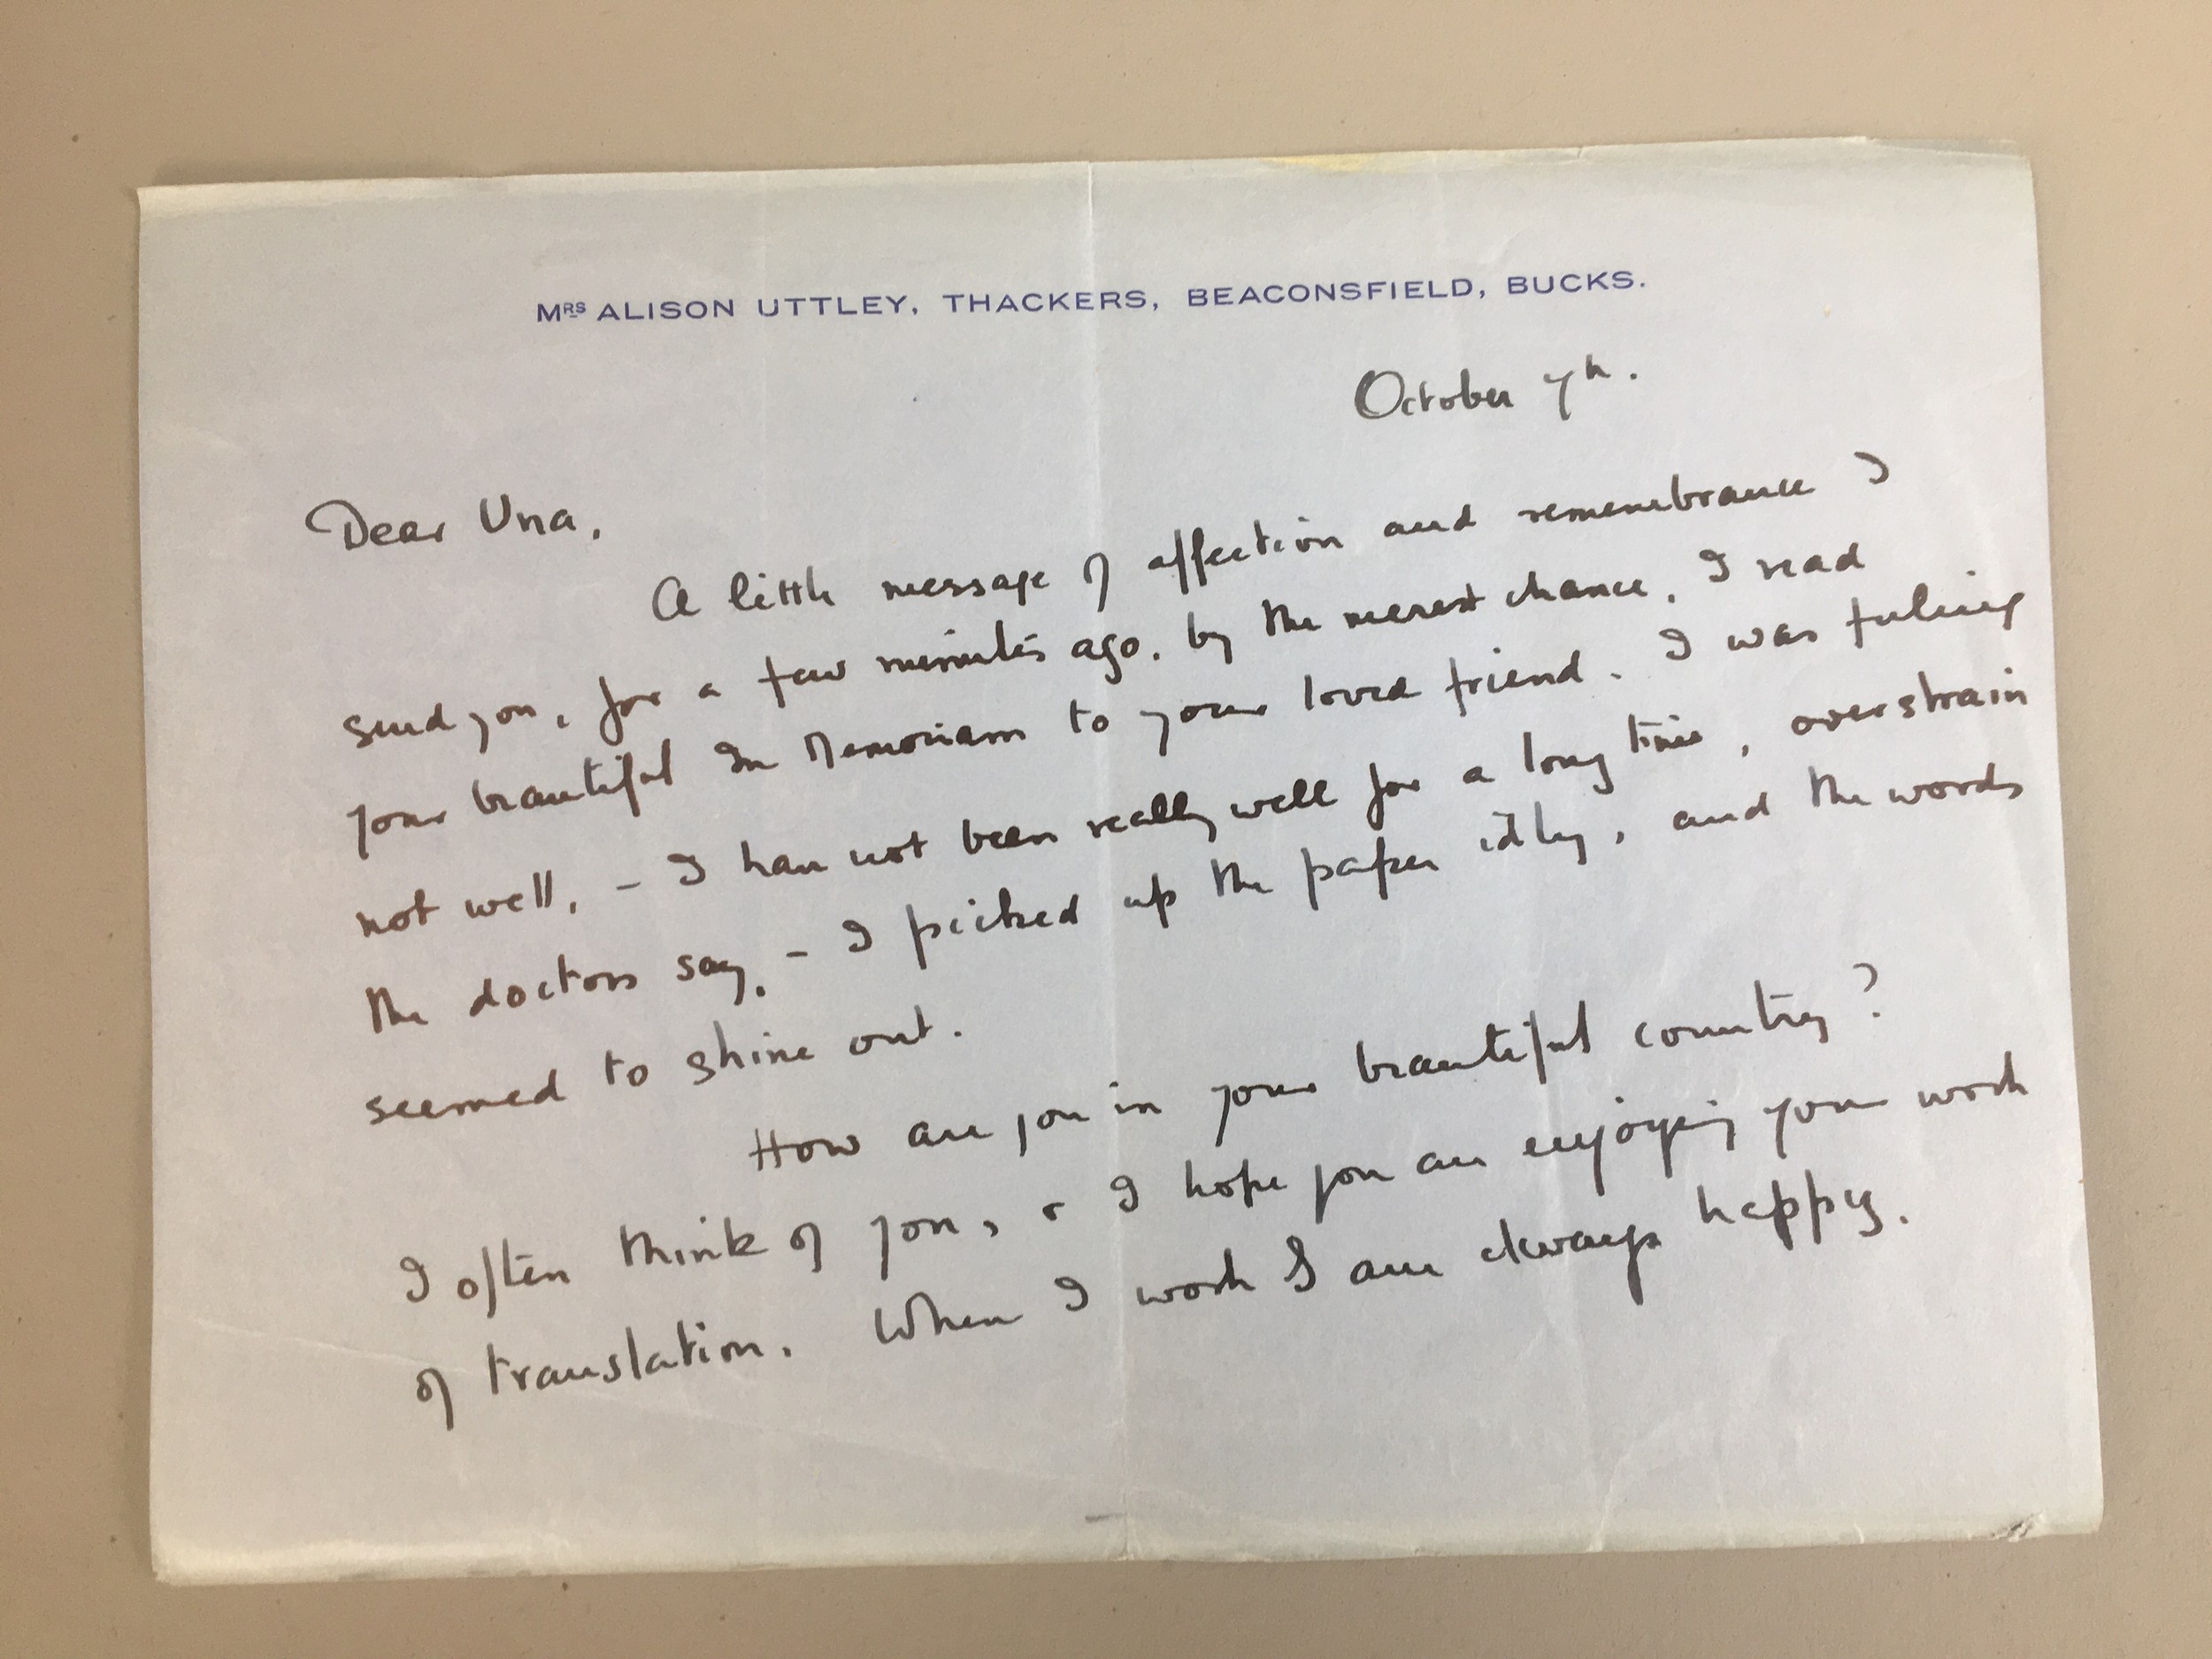 MRS ALISON UTTLEY, THACKERS, BEACONSFIELD, BUCKS.
October 7th.
Dear Una,
A little message of affection and remembrance I
send you, for a few minutes ago, by the merest chance, I read
your beautiful In Memoriam to your loved friend. I was feeling
not well, – I have not been really well for a long time, overstrain
the doctors say, – I picked up the paper idly, and the words
seemed to shine out.
How are you in your beautiful country?
I often think of you, & I hope you are enjoying your work
of translation. When I work I am always happy.